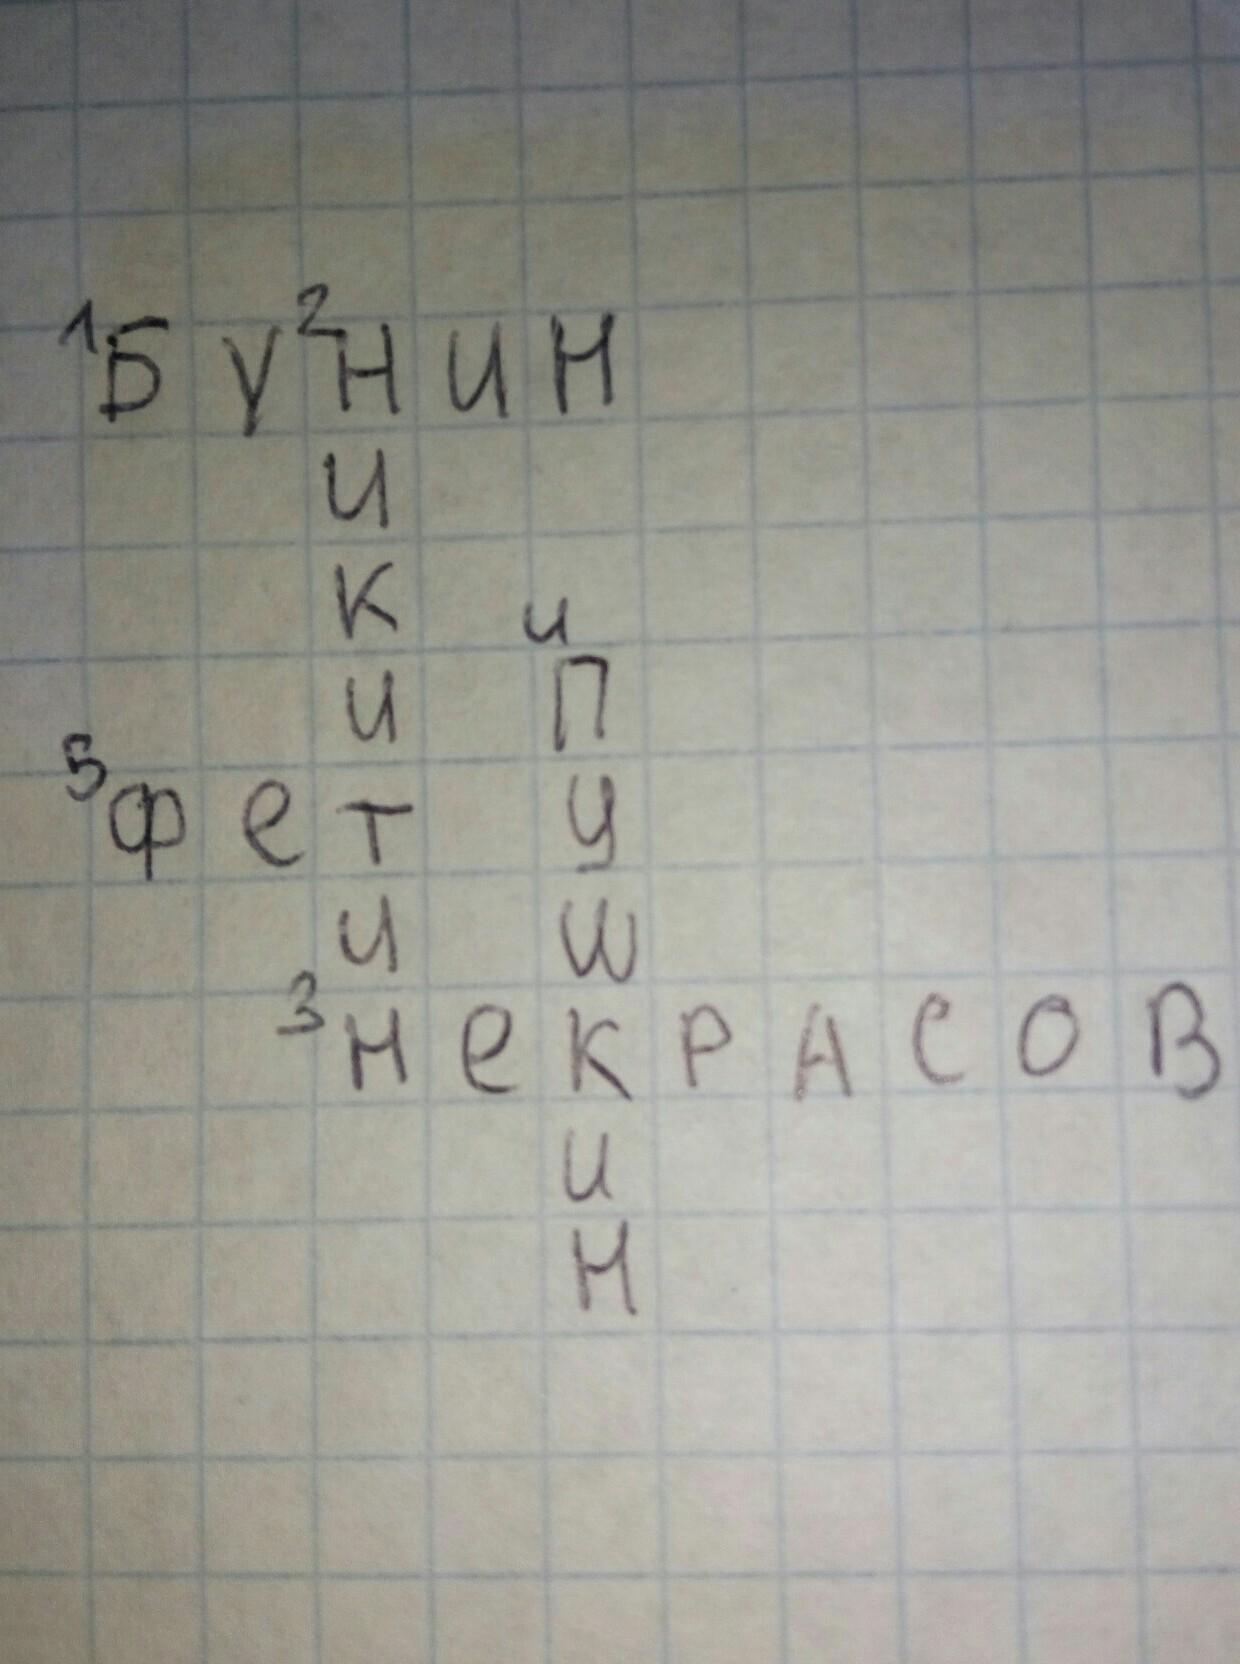 1 БУ2НИН
И
К 4
И П
5 ФеТ У
И Ш
3 НеКРАСОВ
И
Н